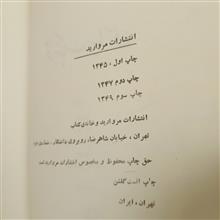 انتشارات مروارید
چاپ اول، ۱۳۴۵
چاپ دوم ۱۳۴۷
چاپ سوم ۱۳۴۹
انتشارات مروارید و خانه‌ی کتاب
تهران، خیابان شاهرضا، روبروی دانشگاه،
حق چاپ محفوظ و مخصوص انتشارات مروارید است
چاپ افست گلشن
تهران، ایران